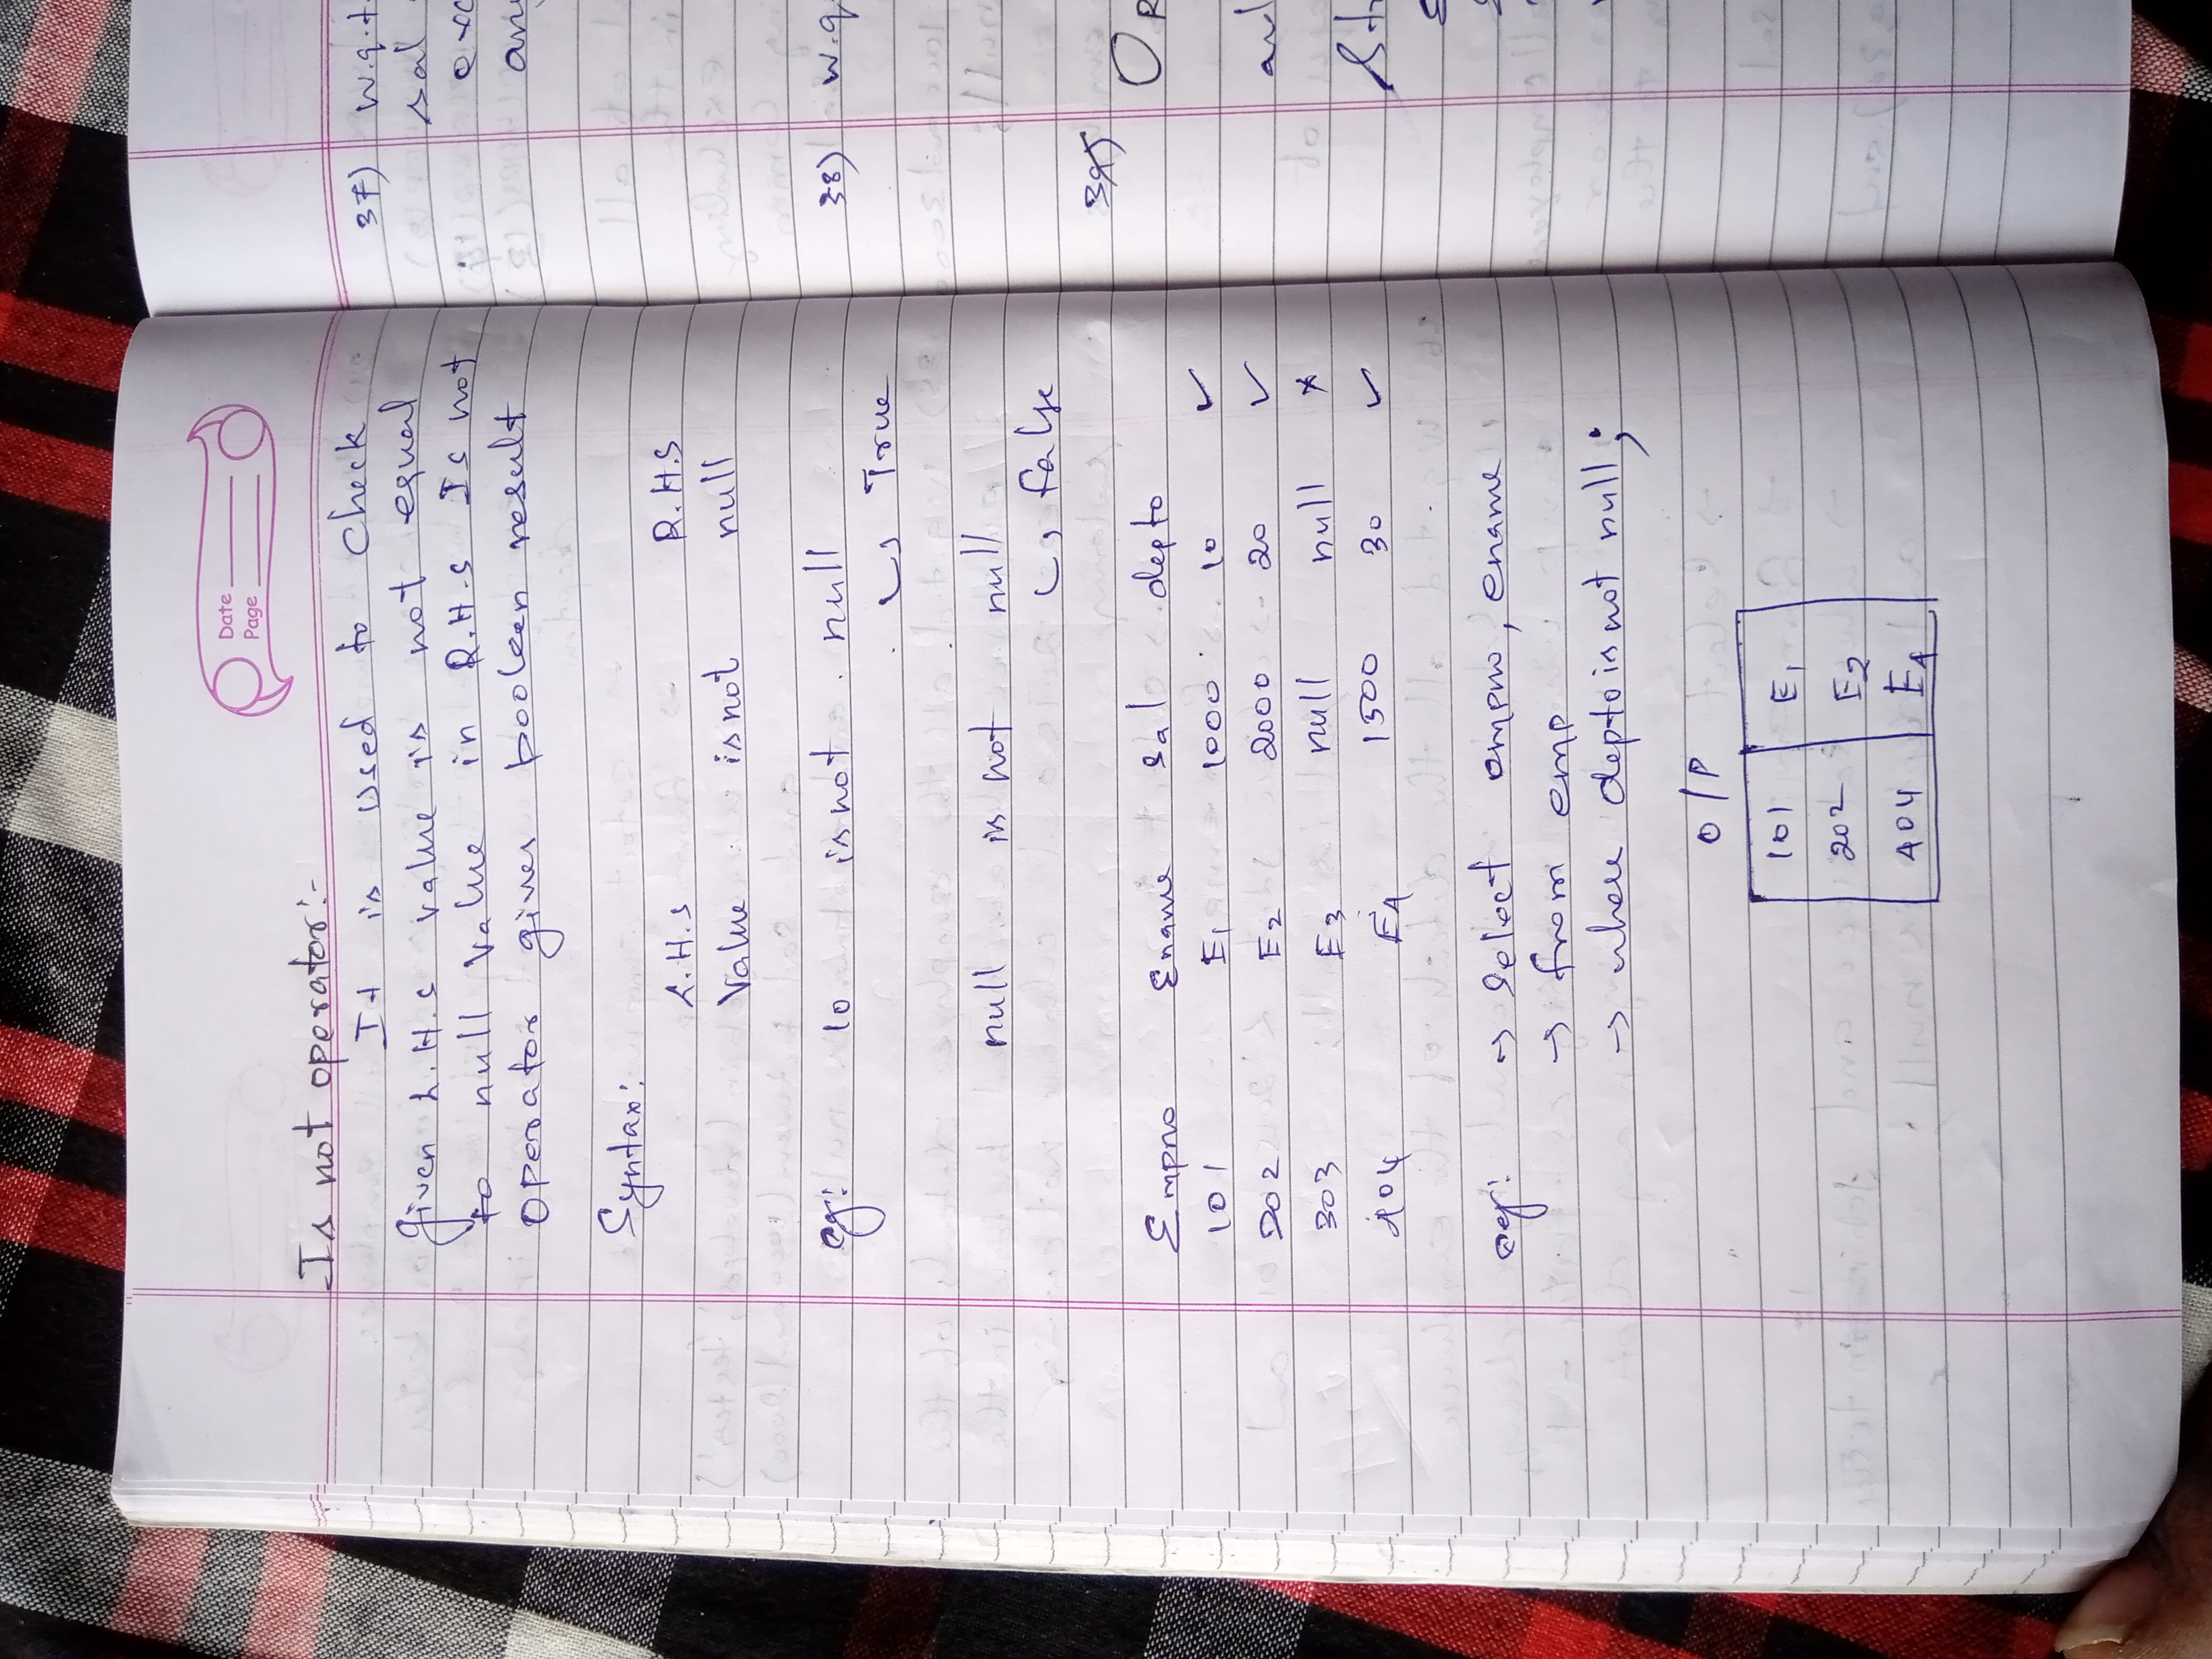 Date
Page
Is not operator:-
It is used to check
given L.H.S value is not equal
to null value in R.H.S Is not
operator gives boolean result
Syntax:
L.H.S R.H.S
Value is not null
eg: 10 is not null
↳ True
null is not null
↳ false
Empno Ename sal depto
101 E1 1000 10 ✓
202 E2 2000 20 ✓
303 E3 null null ×
404 E4 1500 30 ✓
eg: → select empno, ename
→ from emp
→ where depto is not null;
O/P
101 E1
202 E2
404 E4
37) w.q.t
sal
exc
any
38) w.q
39)
Op
and